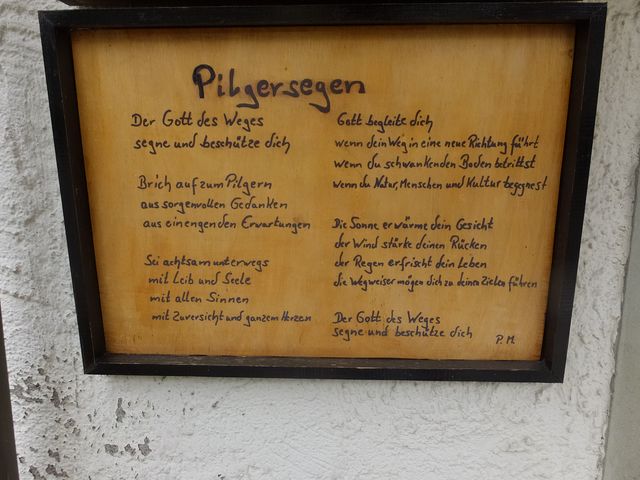 Pilgersegen
Der Gott des Weges
segne und beschütze dich
Brich auf zum Pilgern
aus sorgenvollen Gedanken
aus einengenden Erwartungen
Sei achtsam unterwegs
mit Leib und Seele
mit allen Sinnen
mit Zuversicht und ganzem Herzen
Gott begleite dich
wenn dein Weg in eine neue Richtung führt
wenn du schwankenden Boden betrittst
wenn du Natur, Menschen und Kultur begegnest
Die Sonne erwärme dein Gesicht
der Wind stärke deinen Rücken
der Regen erfrischt dein Leben
die Wegweiser mögen dich zu deinen Zielen führen
Der Gott des Weges
segne und beschütze dich
P. M.